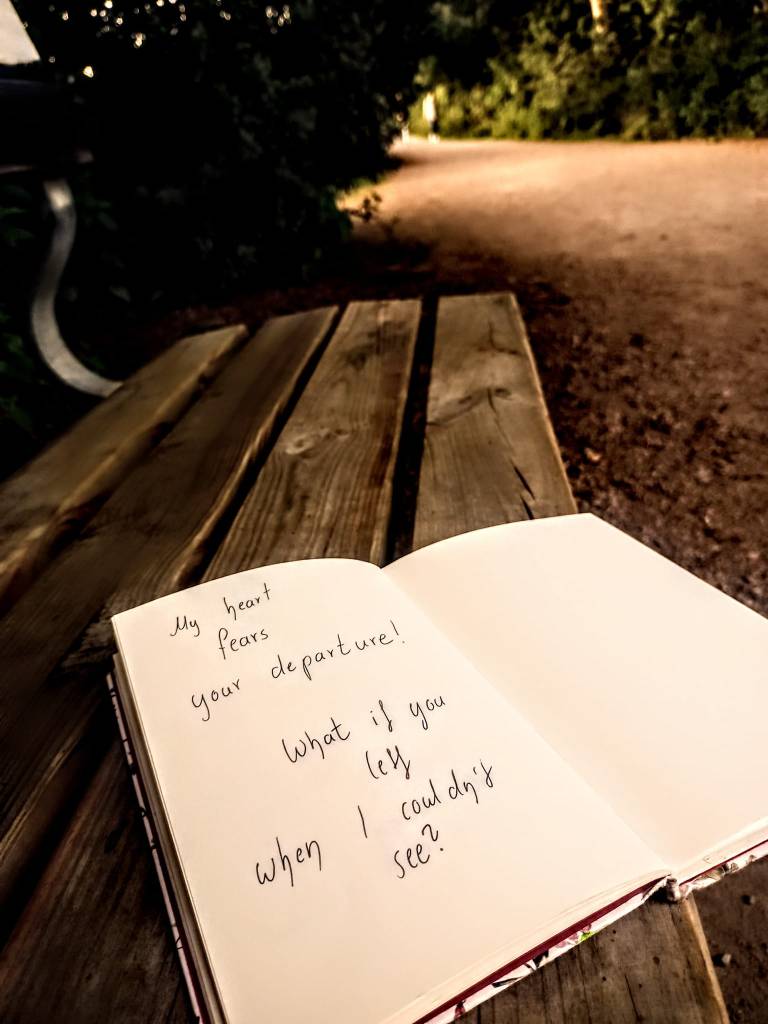 My heart
fears
your departure!
What if you
left
when I couldn't
see?